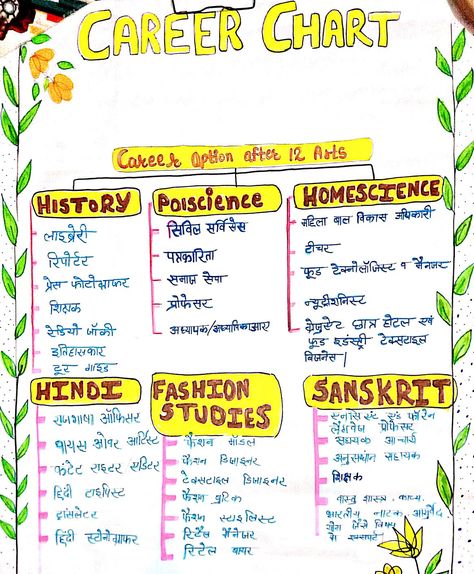 CAREER CHART
Career Option after 12 Arts
HISTORY
लाइब्रेरी
रिपोर्टर
प्रेस फोटोग्राफर
शिक्षक
रेडियो जॉकी
इतिहासकार
टूर गाइड
Poiscience
सिविल सर्विसेस
पत्रकारिता
समाज सेवा
प्रोफेसर
अध्यापक/अध्यापिकाआर
HOMESCIENCE
महिला बाल विकास अधिकारी
टीचर
फूड टेक्नोलॉजिस्ट व मैनेजर
न्यूट्रीशनिस्ट
ग्रेजुऐट छात्र होटल एवं
फूड इंडस्ट्री टेक्सटाइल
बिजनेस।
HINDI
राजभाषा ऑफिसर
वायस ओवर आर्टिस्ट
कंटेंट राइटर एडिटर
हिंदी टाइपिस्ट
ट्रांसलेटर
हिंदी स्टेनोग्राफर
FASHION
STUDIES
फैशन मॉडल
फैशन डिजाइनर
टेक्सटाइल डिजाइनर
फैशन
फैशन स्टाइलिस्ट
रिटेल मैनेजर
रिटेल बायर
SANSKRIT
एंड फॉरेन
लैंग्वेज प्रोफेसर
सहायक आचार्य
अनुसंधान सहायक
शिक्षक
वास्तु शास्त्र, काव्य,
भारतीय नाटक, आयुर्वेद
योग जैसे विषय